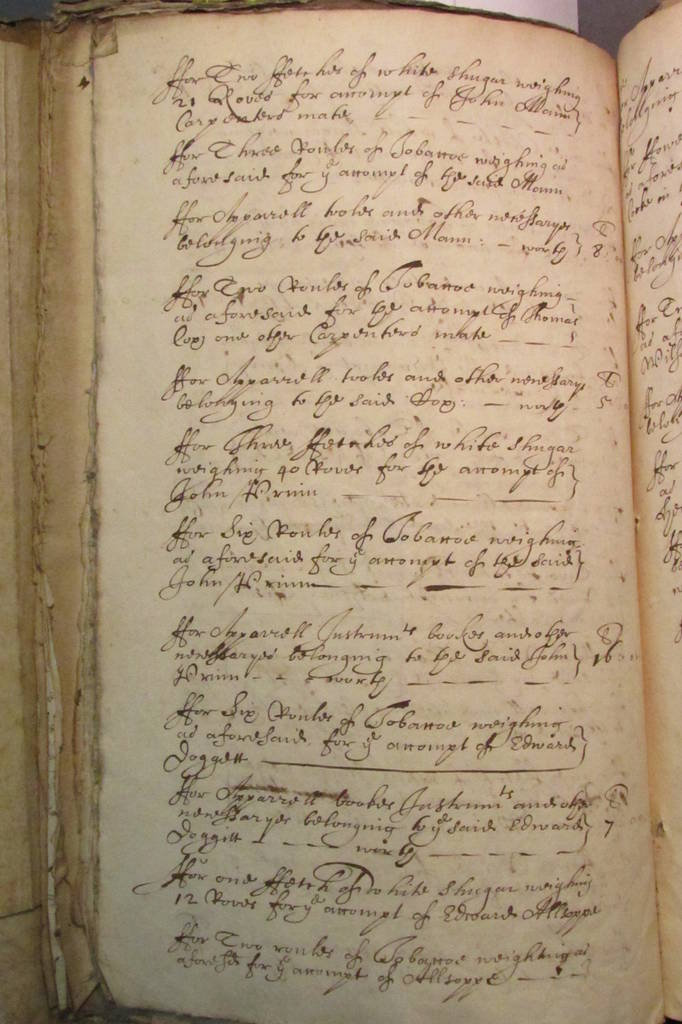 ffor Two ffetches of white Shugar weighing
21 Roves for accompt of John Mann
Carpenters mate
ffor Three Roules of Tobaccoe weighing as
aforesaid for ye accompt of the said Mann
ffor Apparrell tooles and other necessaryes
belonging to the said Mann: - worth 8
ffor Two Roules of Tobaccoe weighing
as aforesaid for the accompt of Thomas
Cox one other Carpenters mate
ffor Apparrell tooles and other necessarys
belonging to the said Cox: - worth 5
ffor Three ffetches of white Shugar
weighing 40 Roves for the accompt of
John
ffor Six Roules of Tobaccoe weighing
as aforesaid for ye accompt of the said
John
ffor Apparrell Instrumts bookes and other
necessaryes belonging to the said John 16
worth
ffor Six Roules of Tobaccoe weighing
as aforesaid for ye accompt of Edward
Doggett
ffor Apparrell bookes Instrumts and other
necessaryes belonging to ye said Edward 7
Doggett - - - worth
ffor one ffetch of white Shugar weighing
12 Roves for ye accompt of Edward Allsoppe
ffor Two roules of Tobaccoe weighing as
aforesd for ye accompt of Allsoppe